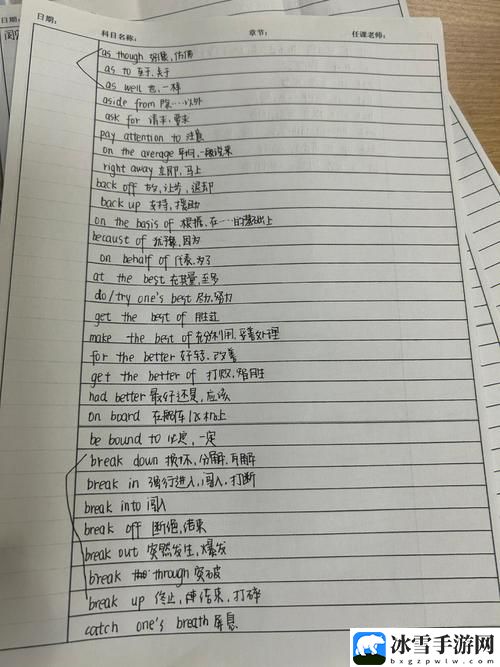 日期: 科目名称: 章节: 任课老师:
日期:
as though 好像,仿佛
as to 至于,关于
as well 也,一样
aside from 除…以外
ask for 请求,要求
pay attention to 注意
on the average 平均,一般说来
right away 立即,马上
back off 放,让步,退却
back up 支持,援助
on the basis of 根据,在……的基础上
becaust of 因为
on behalf of 代表,为了
at the best 至多
do/try one's best 尽力,努力
get the best of 胜过
make the best of 充分利用,妥善处理
for the better 好转,改善
get the better of 打败,胜
had better 最好还是,应该
on board 在船/车/飞机上
be bound to 必定,一定
break down 损坏,分解,瓦解
break in 强行进入,闯入,打断
break into 闯入
break off 断绝,结束
break out 突然发生,爆发
break through 突破
break up 终止,结束,打碎
catch one's breath 屏息
冰雪手游网
bxgzpyw.com